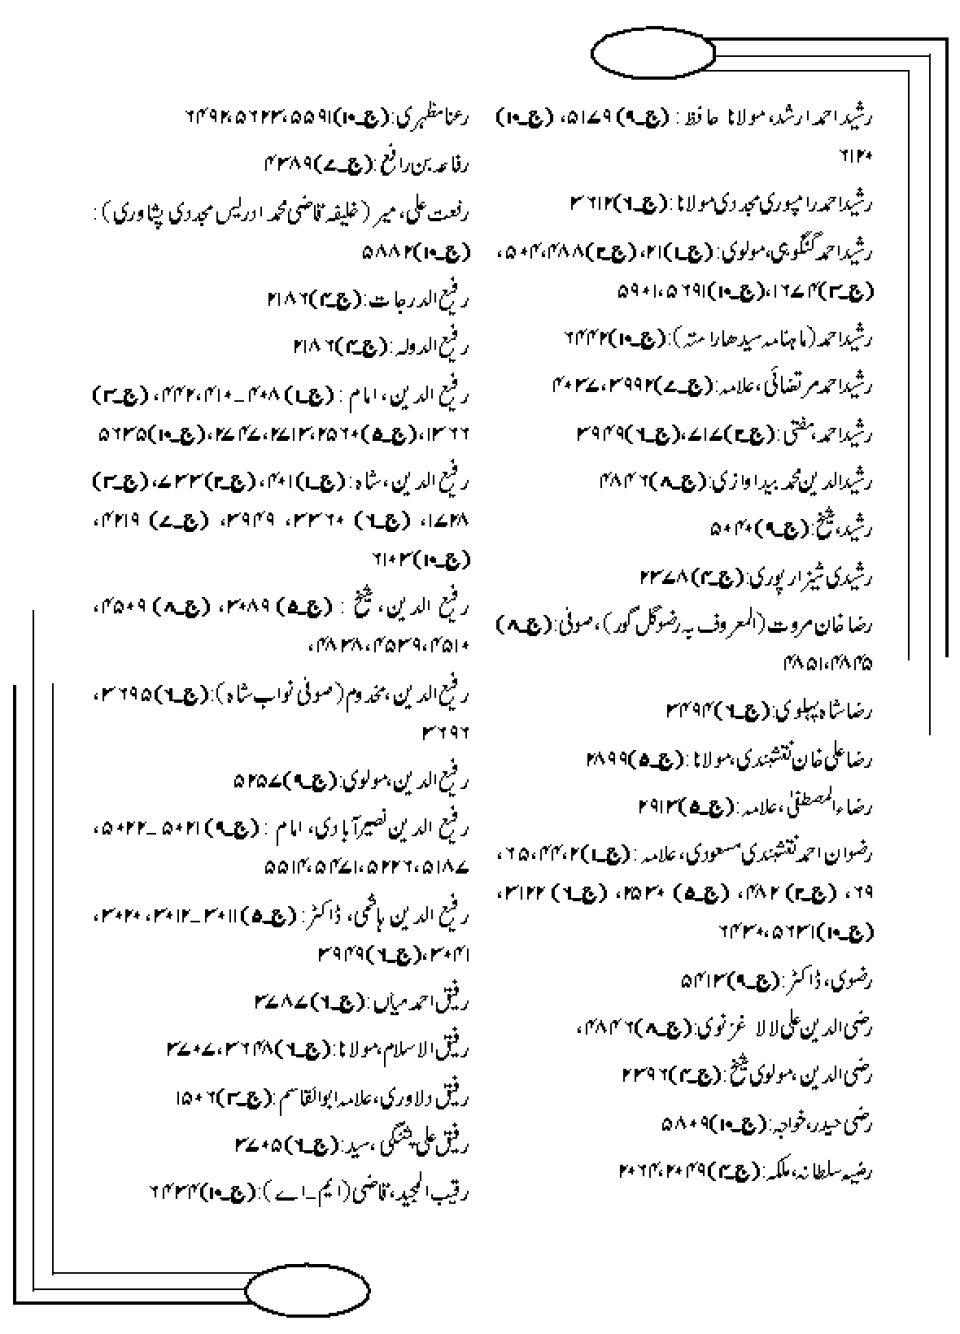 رشید احمد ارشد، مولانا حافظ : (ج۔۹) ۵۱۷۹، (ج۔۱۰)
۶۱۲۰
رشید احمد رامپوری مجددی مولانا : (ج۔۶) ۳۶۱۲
رشید احمد گنگوہی، مولوی: (ج۔۱) ۲۱، (ج۔۲) ۴۸۸، ۵۰۴،
(ج۔۳) ۱۶۷۴، (ج۔۱۰) ۵۶۹۱، ۵۹۰۱
رشید احمد (ماہنامہ سیدھا راستہ): (ج۔۱۰) ۶۴۴۲
رشید احمد مرتضائی، علامہ: (ج۔۷) ۳۹۹۲، ۴۰۳۷
رشید احمد، مفتی: (ج۔۲) ۷۱۷، (ج۔۶) ۳۹۴۹
رشید الدین محمد بیداوازی: (ج۔۸) ۴۸۴۶
رشید، شیخ: (ج۔۹) ۵۰۴۰
رشیدی شیزار پوری: (ج۔۴) ۲۳۷۸
رضا خان مروت (المعروف بہ رضو گل گور)، صوفی: (ج۔۸)
۴۸۴۵، ۴۸۵۱
رضا شاہ پہلوی: (ج۔۶) ۳۴۹۴
رضا علی خان نقشبندی، مولانا : (ج۔۵) ۲۸۹۹
رضاء المصطفیٰ، علامہ : (ج۔۵) ۲۹۱۳
رضوان احمد نقشبندی مسعودی، علامہ : (ج۔۱) ۲، ۴۴، ۶۵،
۶۹، (ج۔۲) ۴۸۲، (ج۔۵) ۲۵۳۰، (ج۔۶) ۳۱۲۲،
(ج۔۱۰) ۵۶۳۱، ۶۴۳۰
رضوی، ڈاکٹر: (ج۔۹) ۵۴۱۳
رضی الدین علی لالا غزنوی: (ج۔۸) ۴۸۴۶،
رضی الدین، مولوی شیخ : (ج۔۴) ۲۳۹۶
رضی حیدر، خواجہ: (ج۔۱۰) ۵۸۰۹
رضیہ سلطانہ، ملکہ: (ج۔۴) ۲۰۴۹، ۲۰۶۴
رعنا مظہری: (ج۔۱۰) ۵۵۹۱، ۵۶۲۳، ۶۴۹۲
رفاعہ بن رافع: (ج۔۷) ۴۳۸۹
رفعت علی، میر (خلیفہ قاضی محمد ادریس مجددی پشاوری) :
(ج۔۱۰) ۵۸۸۲
رفیع الدرجات: (ج۔۴) ۲۱۸۶
رفیع الدولہ: (ج۔۴) ۲۱۸۶
رفیع الدین، امام : (ج۔۱) ۴۰۸ ـ ۴۱۰، ۴۴۲، (ج۔۳)
۱۳۶۶، (ج۔۵) ۲۵۶۰، ۲۷۱۳، ۲۷۴۷، (ج۔۱۰) ۵۶۳۵
رفیع الدین، شاہ : (ج۔۱) ۴۰۱، (ج۔۲) ۷۳۳، (ج۔۳)
۱۷۲۸، (ج۔۶) ۳۳۶۰، ۳۹۴۹، (ج۔۷) ۴۲۱۹،
(ج۔۱۰) ۶۱۰۳
رفیع الدین، شیخ : (ج۔۵) ۳۰۸۹، (ج۔۸) ۴۵۰۹،
۴۵۱۰، ۴۵۳۹، ۴۸۳۸،
رفیع الدین، مخدوم (صوفی نواب شاہ): (ج۔۶) ۳۶۹۵،
۳۶۹۶
رفیع الدین، مولوی: (ج۔۹) ۵۲۵۷
رفیع الدین نصیر آبادی، امام : (ج۔۹) ۵۰۲۱ ـ ۵۰۲۲،
۵۱۸۷، ۵۲۲۶، ۵۴۷۱، ۵۵۱۴
رفیع الدین ہاشمی، ڈاکٹر: (ج۔۵) ۳۰۱۱ ـ ۳۰۱۲، ۳۰۲۰،
۳۰۴۱، (ج۔۶) ۳۹۴۹
رفیق احمد میاں: (ج۔۶) ۳۷۸۷
رفیق الاسلام، مولانا : (ج۔۶) ۳۶۴۸، ۳۷۰۷
رفیق دلاوری، علامہ ابوالقاسم : (ج۔۳) ۱۵۰۶
رفیق علی پشنگی، سید: (ج۔۶) ۳۷۰۵
رقیب المجید، قاضی (ایم۔اے): (ج۔۱۰) ۶۴۳۴